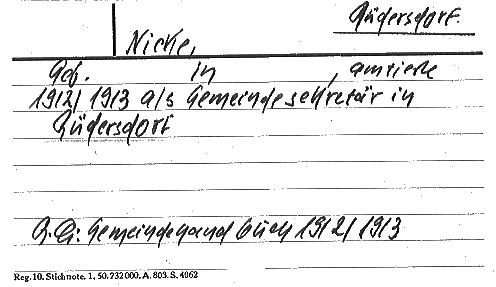 Rüdersdorf.
Nicke,
Geb. in , amtierte
1912/1913 als Gemeindesekretär in
Rüdersdorf
Gemeindehandbuch 1912/1913
Reg. 10. Stichnote. 1, 50. 232000. A. 803. S. 4062